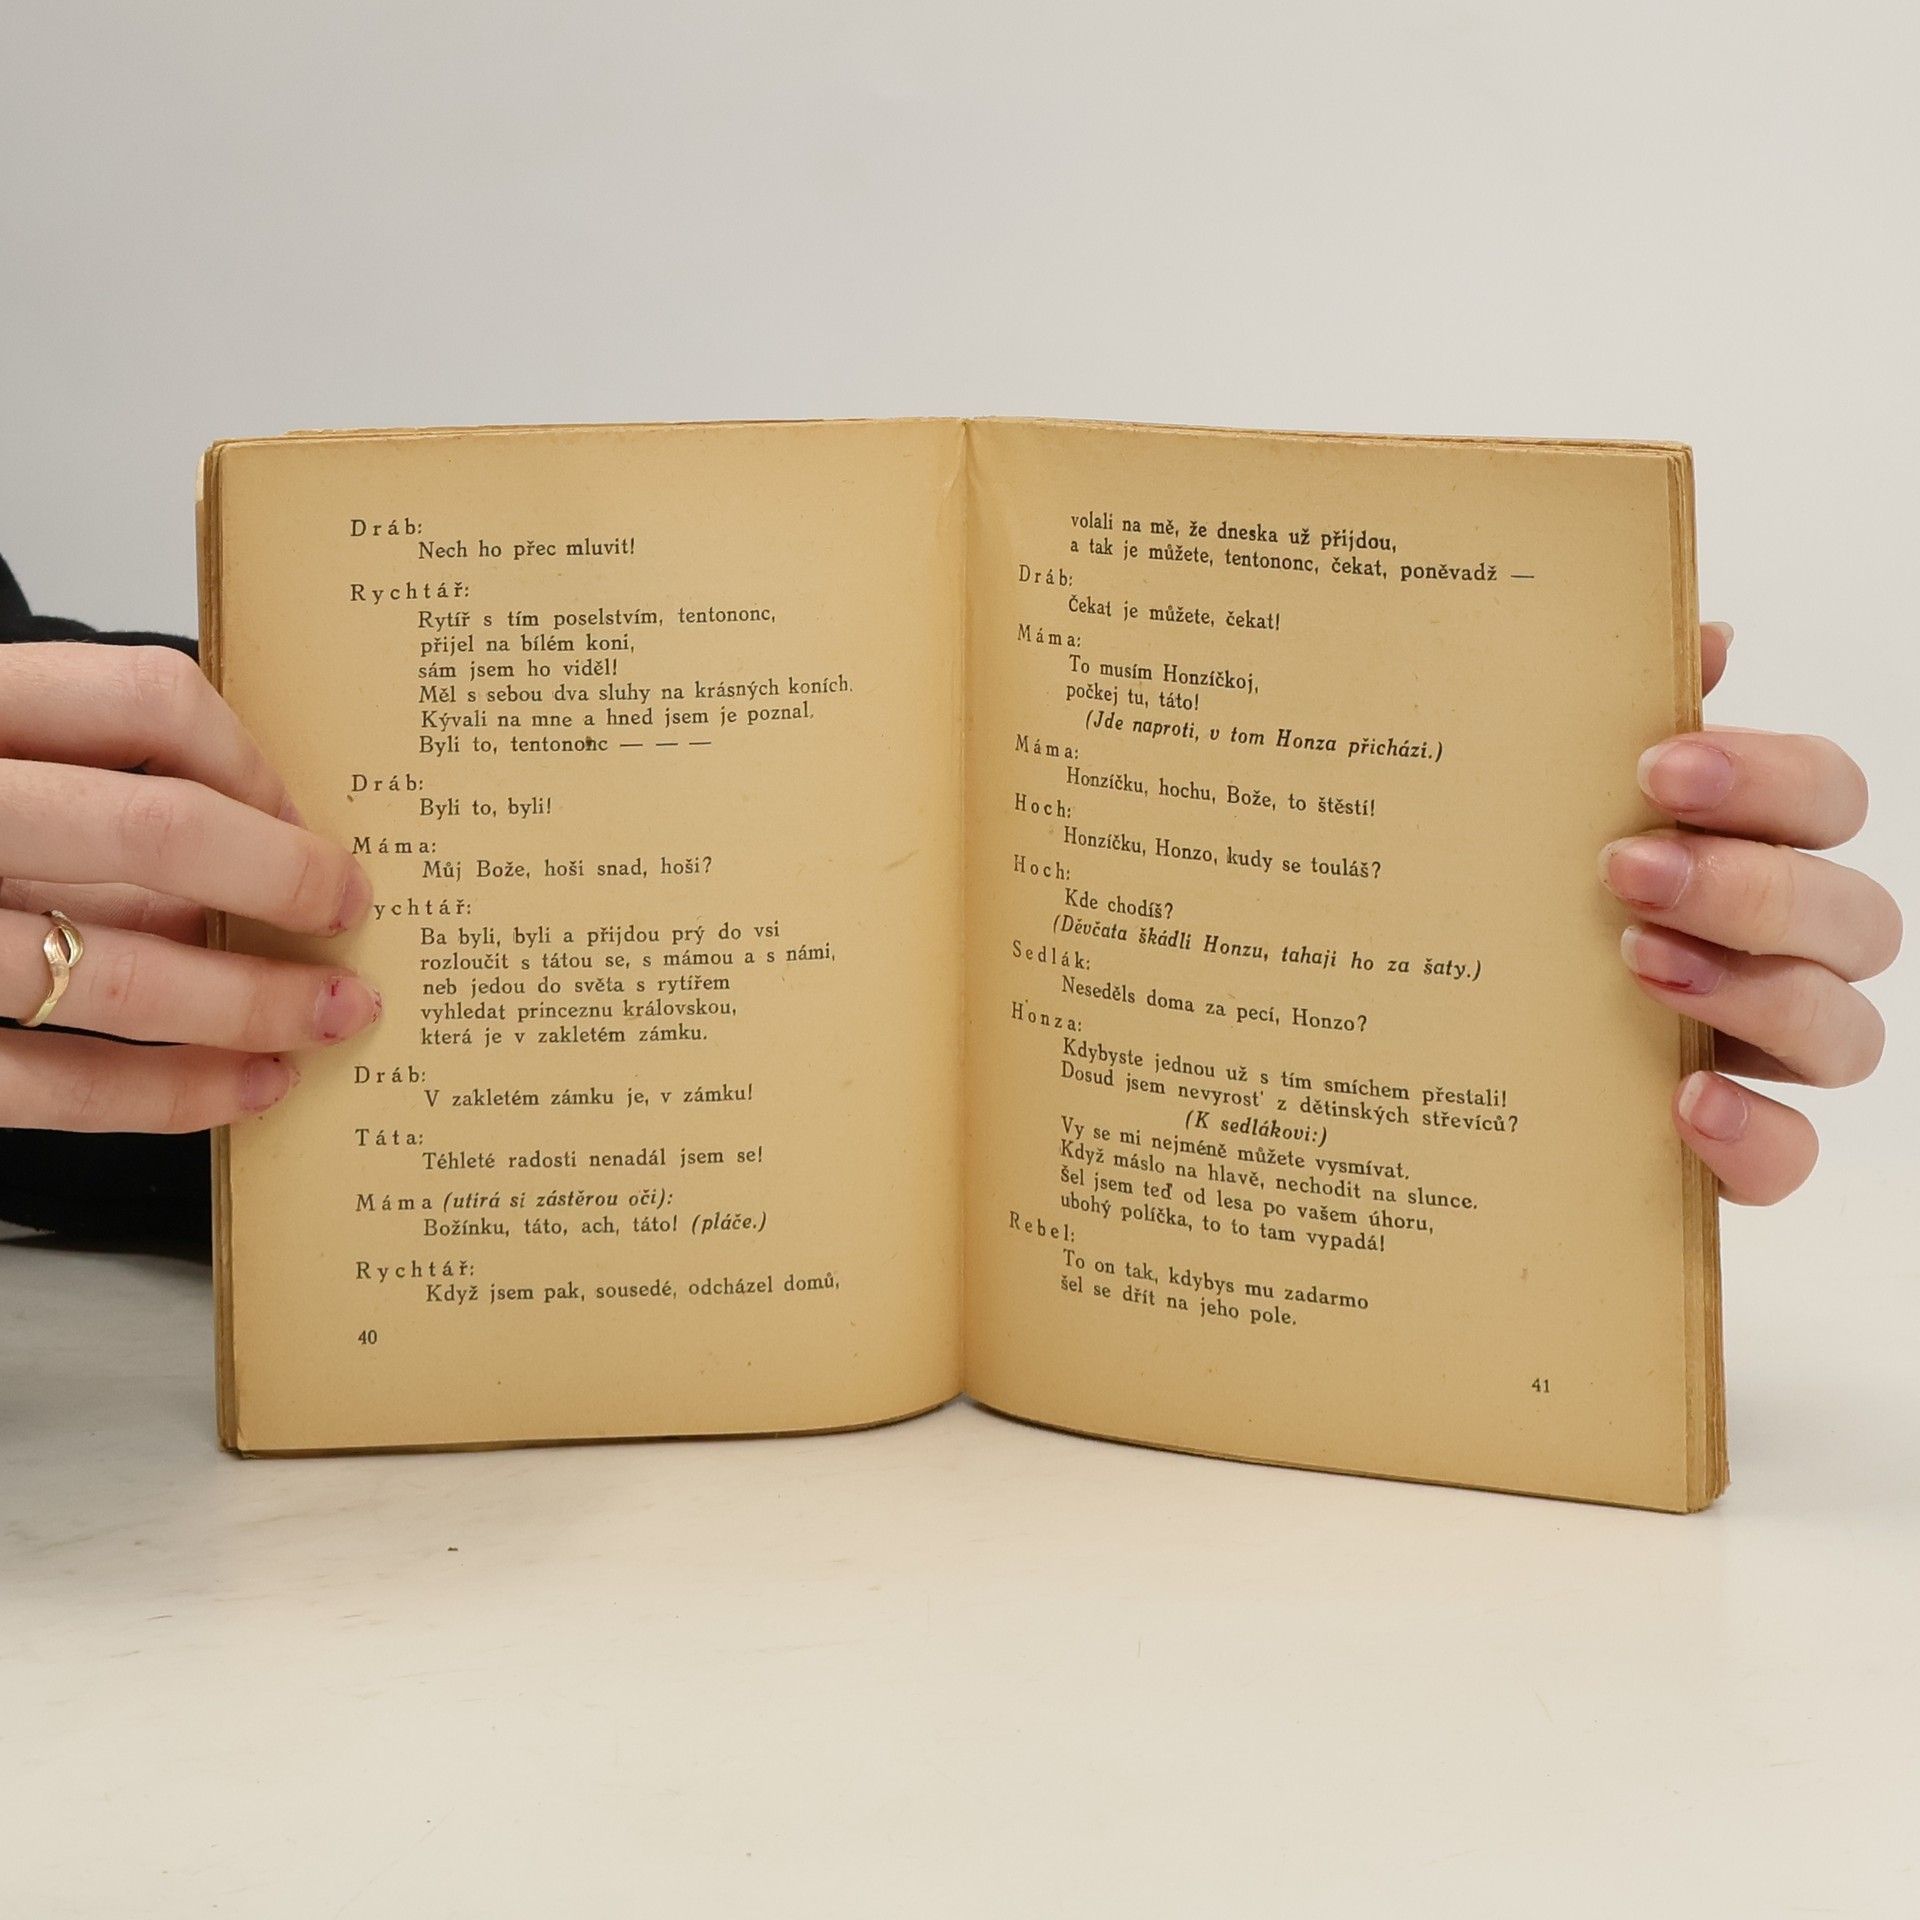 Dráb:
Nech ho přec mluvit!
Rychtář:
Rytíř s tím poselstvím, tentononc,
přijel na bílém koni,
sám jsem ho viděl!
Měl s sebou dva sluhy na krásných koních.
Kývali na mne a hned jsem je poznal.
Byli to, tentononc — — —
Dráb:
Byli to, byli!
Máma:
Můj Bože, hoši snad, hoši?
ychtář:
Ba byli, byli a přijdou prý do vsi
rozloučit s tátou se, s mámou a s námi,
neb jedou do světa s rytířem
vyhledat princeznu královskou,
která je v zakletém zámku.
Dráb:
V zakletém zámku je, v zámku!
Táta:
Téhleté radosti nenadál jsem se!
Máma (utírá si zástěrou oči):
Božínku, táto, ach, táto! (pláče.)
Rychtář:
Když jsem pak, sousedé, odcházel domů,
40
volali na mě, že dneska už přijdou,
a tak je můžete, tentononc, čekat, poněvadž —
Dráb:
Čekat je můžete, čekat!
Máma:
To musím Honzíčkoj,
počkej tu, táto!
(Jde naproti, v tom Honza přichází.)
Máma:
Honzíčku, hochu, Bože, to štěstí!
Hoch:
Honzíčku, Honzo, kudy se touláš?
Hoch:
Kde chodíš?
(Děvčata škádlí Honzu, tahají ho za šaty.)
Sedlák:
Neseděls doma za pecí, Honzo?
Honza:
Kdybyste jednou už s tím smíchem přestali!
Dosud jsem nevyrost' z dětinských střevíců?
(K sedlákovi:)
Vy se mi nejméně můžete vysmívat.
Když máslo na hlavě, nechodit na slunce.
Šel jsem teď od lesa po vašem úhoru,
ubohý políčka, to to tam vypadá!
Rebel:
To on tak, kdybys mu zadarmo
šel se dřít na jeho pole.
41